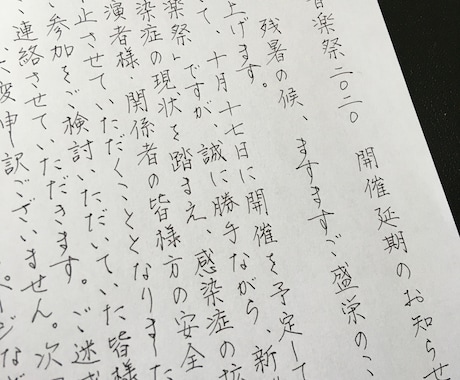 音楽祭二〇二〇 開催延期のお知らせ
残暑の候、ますますご盛栄のこ
上げます。
て、十月十七日に開催を予定して
楽祭」ですが、誠に勝手ながら、新
染症の現状を踏まえ、感染症の拡
演者様、関係者の皆様方の安全
止させていただくこととなりました
参加をご検討いただいていた皆様
連絡させていただきます。ご迷惑
大変申訳ございません。次
ページな